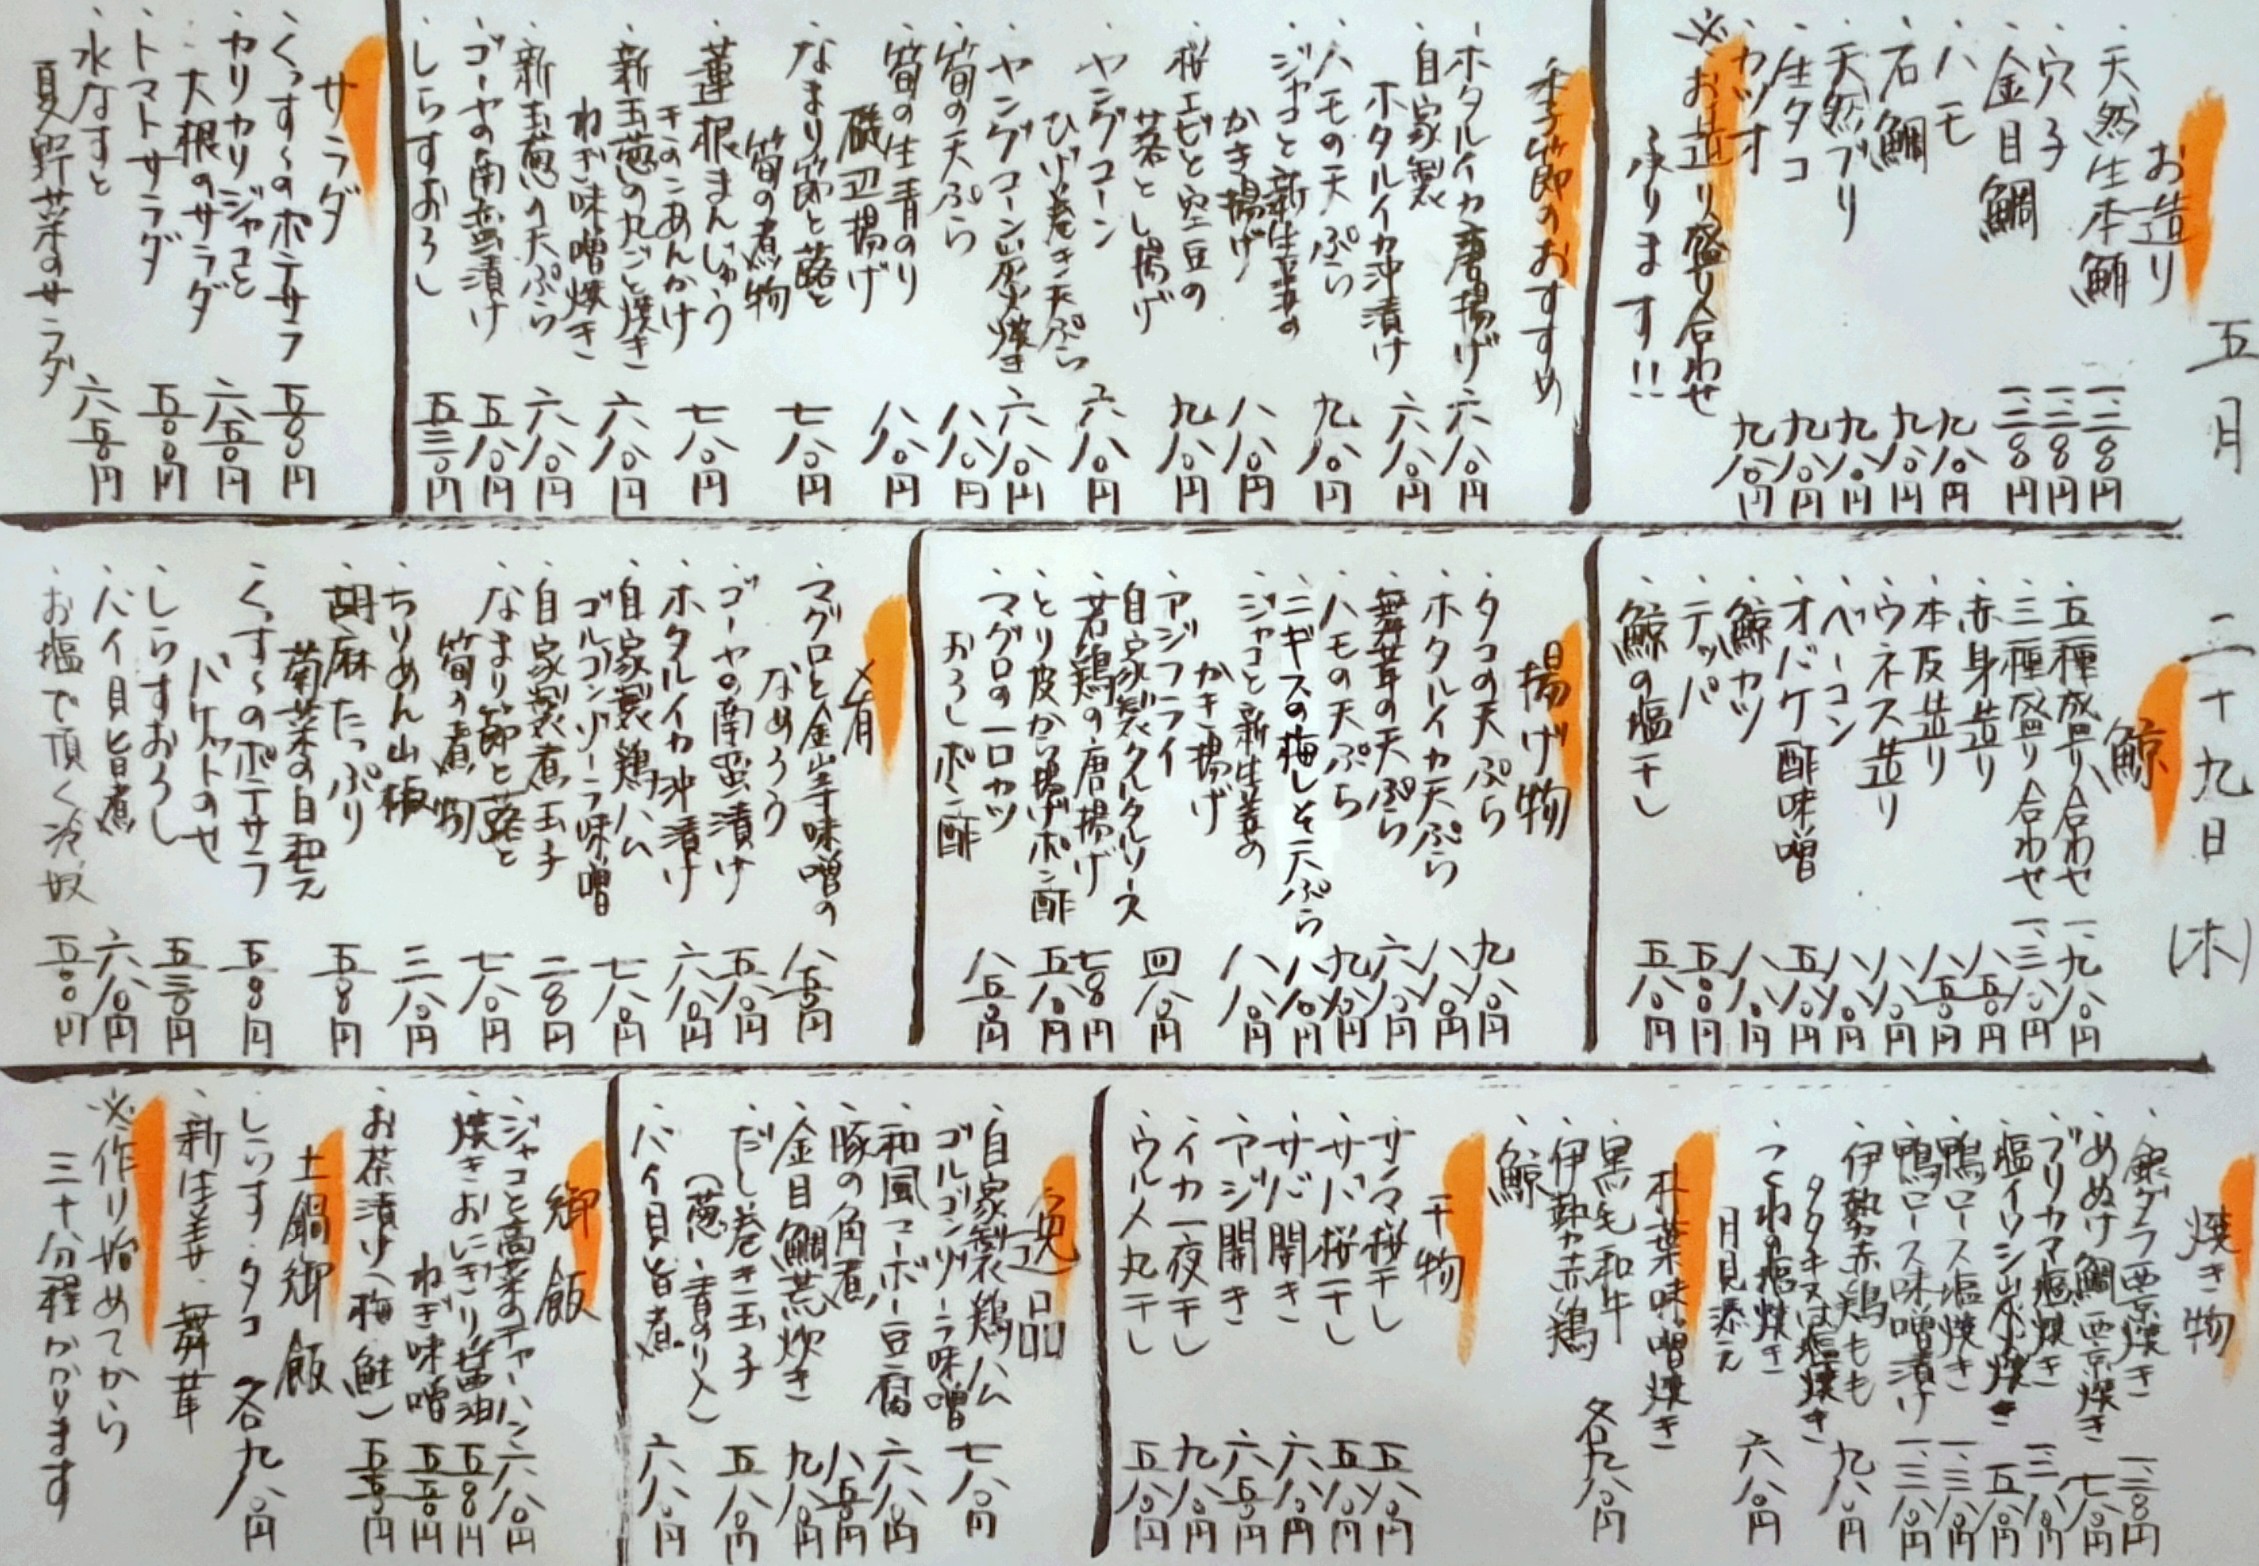 五月二十九日(木)
お造り
・天然生本鮪 一、二八〇円
・金目鯛 一、二八〇円
・穴子 一、二八〇円
・ハモ 九八〇円
・石鯛 九八〇円
・天然ブリ 九八〇円
・生タコ 九八〇円
・カツオ 九八〇円
※お造り盛り合わせ
承ります!!
季節のおすすめ
・ホタルイカ唐揚げ 六八〇円
・自家製
ホタルイカ沖漬け 六八〇円
・ハモの天ぷら 九八〇円
・ジャコと新生姜の
かき揚げ 八八〇円
・桜エビと空豆の
落とし揚げ 九八〇円
・ヤングコーン
ひげ巻き天ぷら 六八〇円
・ヤングコーン炭火焼き 六八〇円
・筍の天ぷら 八八〇円
・筍の生青のり
磯辺揚げ 八八〇円
・なまり節と蕗と
筍の煮物 七八〇円
・蓮根まんじゅう
きのこあんかけ 七八〇円
・新玉葱の丸ごと焼き
ねぎ味噌焼き 六八〇円
・新玉葱の天ぷら 六八〇円
・ゴーヤの南蛮漬け 五八〇円
・しらすおろし 五三〇円
サラダ
・くっす〜のポテサラ 五八〇円
・カリカリジャコと
大根のサラダ 六五〇円
・トマトサラダ 五〇〇円
・水なすと
夏野菜のサラダ 六五〇円
鯨
・五種盛り合わせ 一、九八〇円
・三種盛り合わせ 一、三八〇円
・赤身造り 八五〇円
・本皮造り 八五〇円
・ウネス造り 八八〇円
・ベーコン 八八〇円
・オバケ酢味噌 五八〇円
・鯨カツ 八八〇円
・テッパ 五〇〇円
・鯨の塩干し 五八〇円
揚げ物
・タコの天ぷら 九八〇円
・ホタルイカ天ぷら 八八〇円
・舞茸の天ぷら 六八〇円
・ハモの天ぷら 九八〇円
・ニギスの梅しそ天ぷら 八八〇円
・ジャコと新生姜の
かき揚げ 八八〇円
・アジフライ
自家製タルタルソース 四八〇円
・若鶏の唐揚げ 七八〇円
・とり皮から揚げポン酢 五八〇円
・マグロの一口カツ
おろしポン酢 八五〇円
肴
・マグロと金山寺味噌の
なめろう 八五〇円
・ゴーヤの南蛮漬け 五八〇円
・ホタルイカ沖漬け 六八〇円
・自家製鶏ハム
ゴルゴンゾーラ味噌 七八〇円
・自家製煮玉子 二八〇円
・なまり節と蕗と
筍の煮物 七八〇円
・ちりめん山椒 三八〇円
・胡麻たっぷり
菊菜の白和え 五八〇円
・くっす〜のポテサラ
バケットのせ 五八〇円
・しらすおろし 五三〇円
・バイ貝旨煮 六八〇円
・お塩で頂く冷奴 五〇〇円
焼き物
・銀ダラ西京焼き 一、二八〇円
・めぬけ鯛西京焼き 七八〇円
・ブリカマ塩焼き
・塩イワシ炭火焼き 五八〇円
・鴨ロース塩焼き 一、三八〇円
・鴨ロース味噌漬け 一、三八〇円
・伊勢赤鶏もも
タタキ又は塩焼き 九八〇円
・つくねの塩焼き
月見添え 六八〇円
朴葉味噌焼き
・黒毛和牛
・伊勢赤鶏
・鯨 各九八〇円
干物
・サンマ桜干し 五八〇円
・サバ桜干し 五八〇円
・サバ開き 六八〇円
・アジ開き 六五〇円
・イカ一夜干し 九八〇円
・ウルメ丸干し 五八〇円
逸品
・自家製鶏ハム
ゴルゴンゾーラ味噌 七八〇円
・和風マーボー豆腐 六八〇円
・豚の角煮 八五〇円
・金目鯛荒炊き 九八〇円
・だし巻き玉子
(葱・青のり入) 五八〇円
・バイ貝旨煮 六八〇円
御飯
・ジャコと高菜のチャーハン 六八〇円
・焼きおにぎり醤油 五〇〇円
ねぎ味噌 五五〇円
・お茶漬け(梅・鮭) 五五〇円
土鍋御飯
・しらす・タコ 各九八〇円
・新生姜・舞茸
※作り始めてから
三十分程かかります